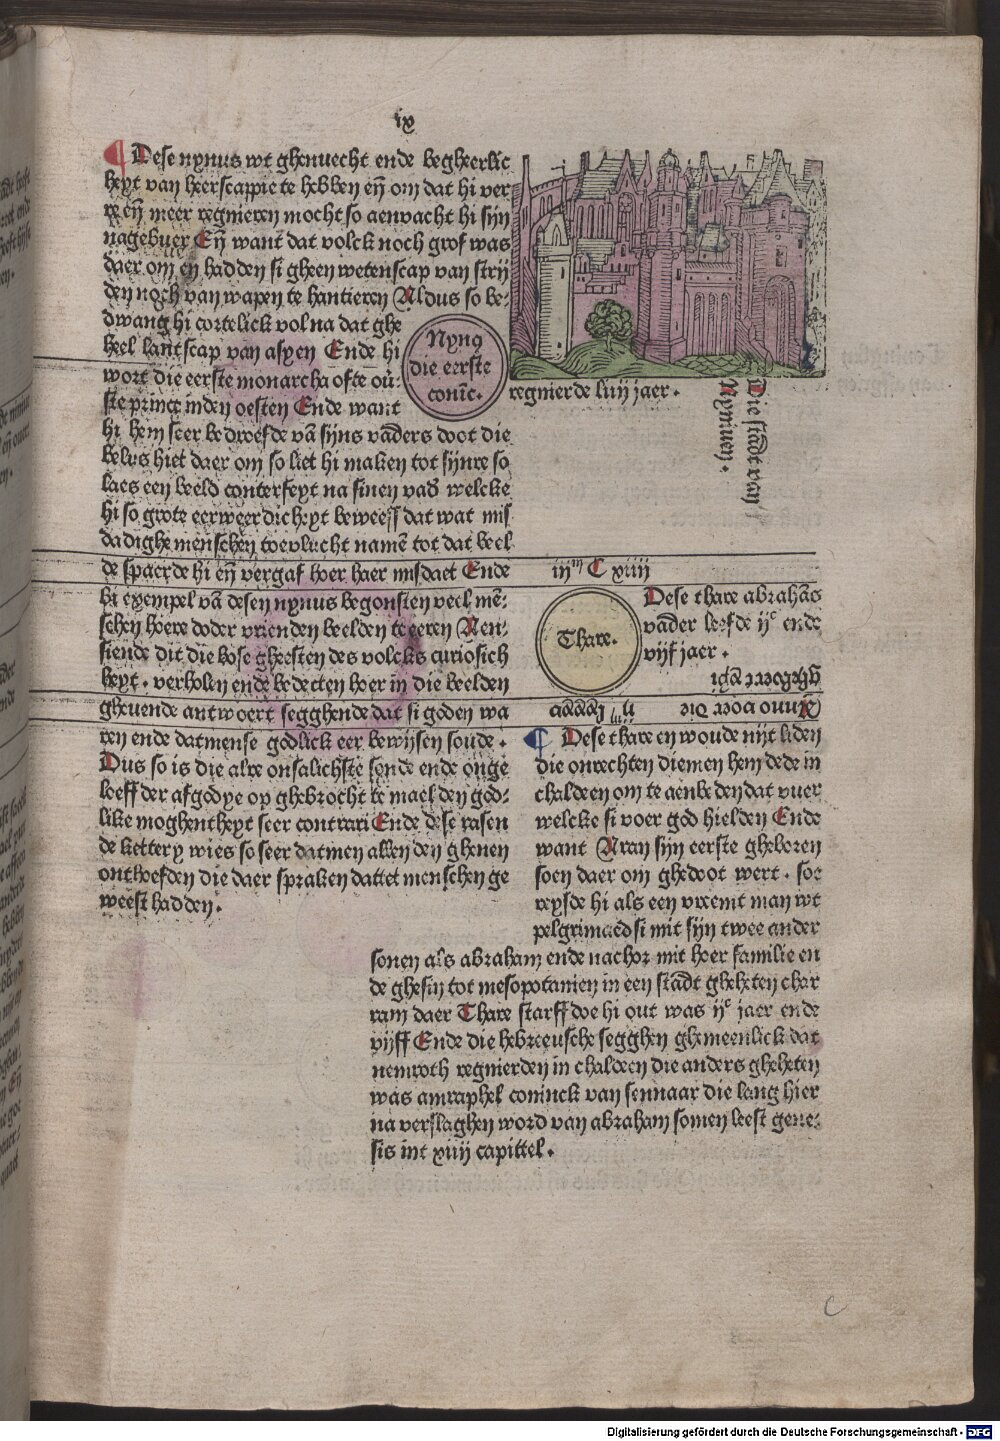 ix
Dese nynus wt ghenuecht ende begheerlic
heyt van heerscappie te hebben eñ om dat hi ver
re eñ meer regnieren mocht so aenvacht hi sijn
nagebuer Eñ want dat volck noch grof was
daer om eñ hadden si gheen wetenscap van strij
den noch van wapen te hantieren Aldus so be-
dwang hi cortelick vol na dat ghe
heel lantscap van asyen Ende hi
wort die eerste monarcha ofte ou-
ste prince inden oesten Ende want
hi hem seer bedroefde vā sijns vaders doot die
belus hiet daer om so liet hi maken tot sijnre so
laes een beeld conterfeyt na sinen vad welcke
hi so grote eerweerdicheyt beweeſſ dat wat mis
dadighe menschen toevlucht namē tot dat beel
de spaerde hi eñ vergaf hoer haer misdaet Ende
bi exempel vā desen nynus begonsten veel mē-
schen hoere doder vrienden beelden te eeren Aen-
siende dit die bose gheesten des volcks curiosich
heyt. verholen ende bedecten hoer in die beelden
gheuende antwoert segghende dat si goden wa
ren ende datmense godlick eer bewijsen soude.
Dus so is die alre onsalichste sonde ende onge
loeff der afgodye op ghebrocht te mael den god-
like moghentheyt seer contrari Ende dese rasen
de kettery wies so seer datmen allen den ghenen
onthoefden die daer spraken dattet menschen ge
weest hadden.
Nyn9
die eerste
conīc.
regnierde liiij jaer.
Die stadt van
Nyniuen.
iijᵐ C xiiij
Thare.
Dese thare abrahās
vader leefde ijᶜ ende
vijf jaer.
Anno voer die
gheboert xp̄i
Dese thare en woude nijt liden
die onrechten diemen hem dede in
chaldeen om te aenbeden dat vuer
welcke si voer god hielden Ende
want Aran sijn eerste gheboren
soen daer om ghedoot wert. soe
reysde hi als een vreemt man wt
pelgrimaedsi mit sijn twee ander
sonen als abraham ende nachor mit hoer familie en
de ghesin tot mesopotanien in een stadt gheheten char
ram daer Thare starff doe hi out was ijᶜ jaer ende
vijff Ende die hebreeusche segghen ghemeenlick dat
nemroth regnierden in chaldeen die anders gheheten
was amraphel coninck van sennaar die lang hier
na verslaghen word van abraham somen leest gene-
sis int xiiij capittel.
c
Digitalisierung gefördert durch die Deutsche Forschungsgemeinschaft - DFG